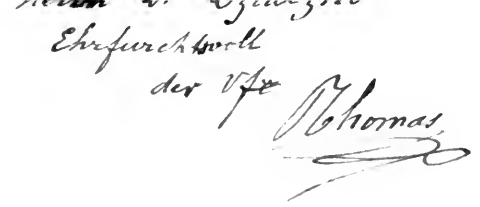 Herrn
Ehrfurchtsvoll
der Vfr
Thomas.